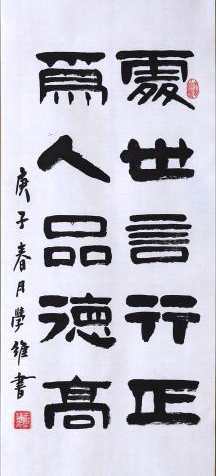 處世言行正
爲人品德高
庚子春月學維書